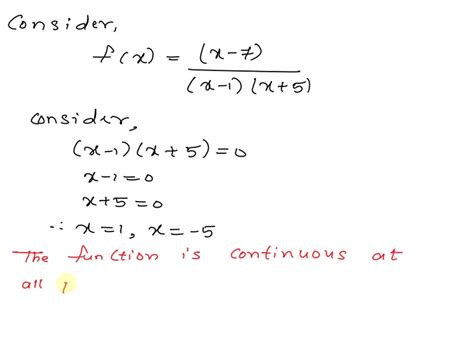 Consider,
f(x) = (x-7)
(x-1)(x+5)
consider,
(x-1)(x+5)=0
x-1=0
x+5=0
∴ x=1, x=-5
The function is continuous at
all